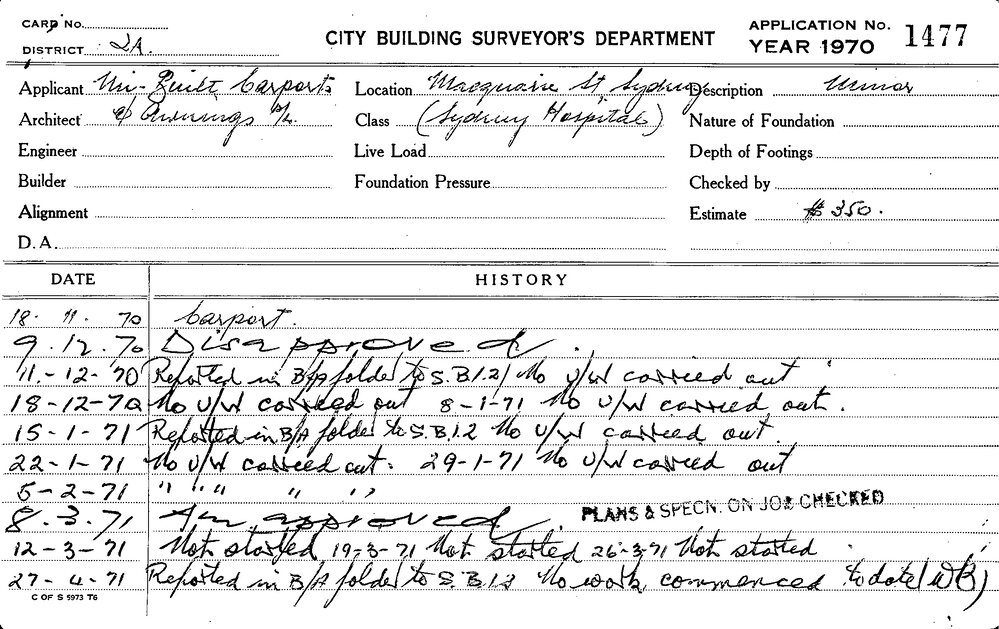 CARD No.
DISTRICT 2A.
CITY BUILDING SURVEYOR'S DEPARTMENT
APPLICATION No. 1477
YEAR 1970
Applicant Uni-Built Carports
Location Macquarie St Sydney
Description Minor
Architect & Awnings P/L.
Class (Sydney Hospital)
Nature of Foundation
Engineer
Live Load
Depth of Footings
Builder
Foundation Pressure
Checked by
Alignment
Estimate $350.
D.A.
DATE HISTORY
18. 11. 70 Carport.
9.12.70 Disapproved.
11.-12-70 Reported in B/A folder to S.B.I.2/ No U/W carried out
18-12-70 No U/W carried out 8-1-71 No U/W carried out.
15-1-71 Reported in B/A folder to S.B.I.2 No U/W carried out.
22-1-71 No U/W carried out. 29-1-71 No U/W carried out
5-2-71 " " " " "
8.3.71 approved.
PLANS & SPECN. ON JOB CHECKED
12-3-71 Not started 19-3-71 Not started 26-3-71 Not started
27-4-71 Reported in B/A folder to S.B.I.2 No work commenced to date (WB)
C OF S 5973 T6